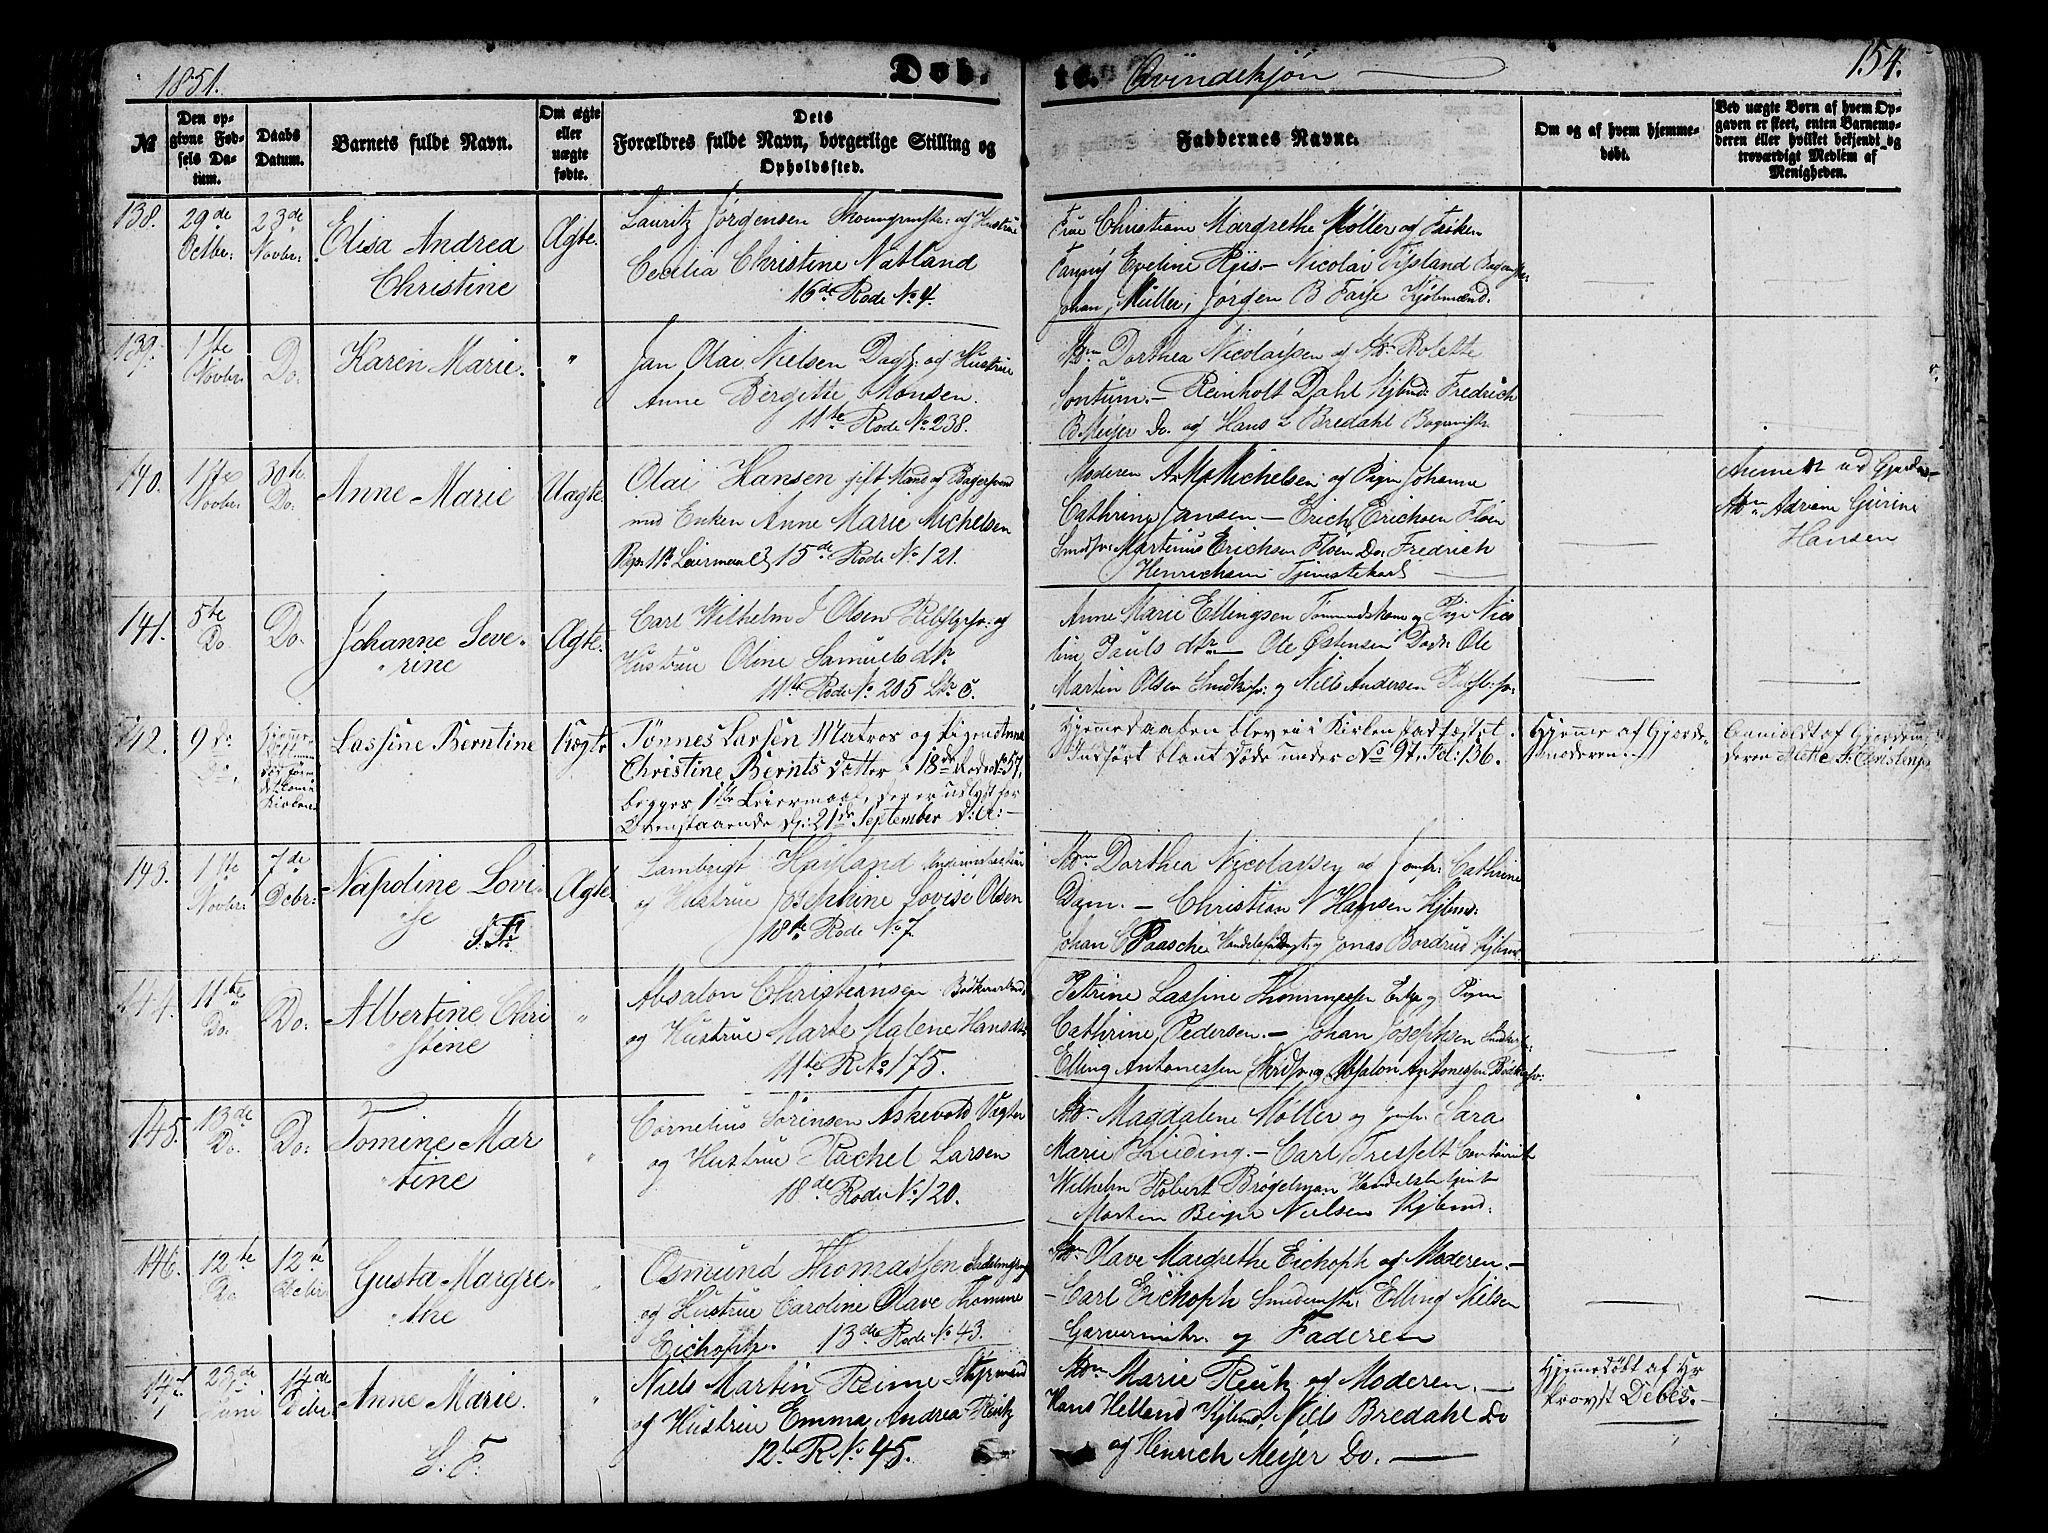 1851. Døb- te. Qvindekjøn 154.
№
Den opgivne Fødsels Datum.
Daabs Datum.
Barnets fulde Navn.
Om ægte eller uægte fødte.
Dets Forældres fulde Navn, borgerlige Stilling og Opholdssted.
Faddernes Navne.
Om og af hvem hjemmedøbt.
Ved uægte Børn af hvem Opgaven er skeet, enten Barnemoderen eller hvilket bekjendt og troværdigt Medlem af Menigheden.
138. 29de Octbr: 23de Novbr:
Elisa Andrea
Christine
Ægte.
Lauritz Jørgensen og Hustrue
Cecilia Christine Natland
16de Rode No 4.
Frue Christiane Margrethe Møller og Frøken
Fanny Eveline Riis - Nicolai Tysland
Johan Müller, Jørgen B Faye Kjøbmænd.
139. 1te Novbr Do:
Karen Marie.
"
Jan Olai Nielsen Dagk: og Hustrue
Anne Bergitte Monsen.
11te Rode No. 238.
Mdm Dorthea Nicolaysen og Mdm Bolette
Sontum. - Reinholt Dahl Kjbmd: Fredrich
B. Meijer Do. og Hans L Bredahl
140. 17de Novbr 30te Do:
Anne Marie
Uægte.
Olai Hansen gift Mand og Bagersvend
med Enken Anne Marie Michelsen
15de Rode No. 121.
Moderen A. M. Michelsen og Pigen Johanne
Cathrine Jansen - Erich Erichsen Fløen
Martinus Erichsen Fløen Do: Fredrich
Henrichsen Tjenestekarl
Mdm Adriane Gurine
Hansen
141. 5te Do. Do:
Johanne Seve-
rine
Ægte.
Carl Wilhelm J Olsen og
Hustrue Oline Samuels dtr
11te Rode No. 205 Ltr. C.
Anne Marie Ellingsen og Pige Nico
line Pauls dtr - Ole Østensen Ole
Martin Olsen og Niels Andersen
142. 9de Do.
Lassine Berntine
Uægte
Tønnes Larsen Matros og Pigen Anne
Christine Bernts datter i 18de Rode No 57,
begges 1ste Leiermaal,
Ovenstaaende d: 21de September d: A: -
Hjemmedaaben blev ei i Kirken stadfæstet.
Indført blant Døde under No 97. Fol: 136.
Hjemme af Gjorde-
moderen. -
Anmeldt af Gjordemo
deren Mette S. Christens
143. 1ste Novbr: 7de Decbr:
Napoline Lovi-
se
S. F.
Ægte.
Lambrigt Haviland
og Hustrue Josephine Lovise Olsen
18te Rode No. 7
Mdm Dorthea Nicolaysen og Jomfr: Cathrine
Dym. - Christian N Hansen Kjbmd:
Johan C Paasche og Jonas Bordrud
144. 11te Do. Do:
Albertine Chri
stine
"
Absalon Christiansen
og Hustrue Marte Malene Hansdtr
11te R No. 175.
Petrine Lassine Thommesen Enke og Pigen
Cathrine Pedersen. - Johan Josephsen
Elling Antonessen og Absalon Antonessen
145. 13de Do. Do:
Tomine Mar
tine
"
Cornelius Sørensen Askevold Vægter
og Hustrue Rachel Larsen
18de Rode No. 120.
Mdm Magdalene Møller og Jomfr: Sara
Marie Kieding. - Carl Tresselt Contoirist
Wilhelm Robert Brøgelman Handelsbetjent
Morten Beyer Nielsen Kjbmd:
146. 12te Do 12te Decbr
Gusta Margre-
the
"
Osmund Thomassen
og Hustrue Caroline Olave Thomine
Eichoph. 13de Rode No. 43.
Mdm Olave Margrethe Eichoph og Moderen. -
- Carl Eichoph Smedemstr. Elling Nielsen
Garvermstr. og Faderen
147. Juni 14de Decbr
Anne Marie.
S. F.
"
Niels Martin Reime Styrmand
og Hustrue Emma Andrea Reutz
12te R No 45.
Mdm Marie Reutz og Moderen. -
Hans Helland Kjbmd, Niels Bredahl Do
og Henrich Meyer Do. -
Hjemmedøbt af Hr
Provst Debes. -